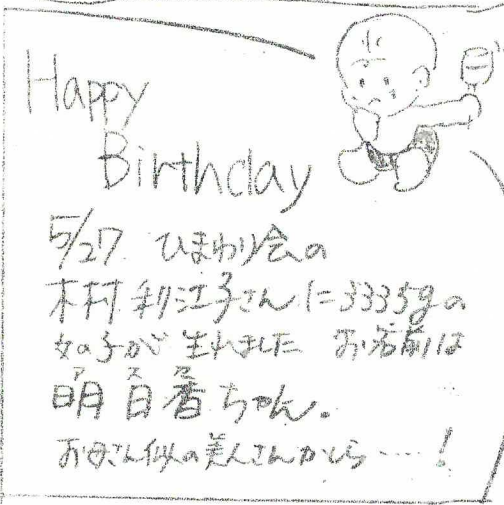 Happy
Birthday
5/27 ひまわり会の
木村利江子さんに3335gの
女の子が生れました お名前は
明日香ちゃん。
アスカ
お母さん似の美人さんかしら……!